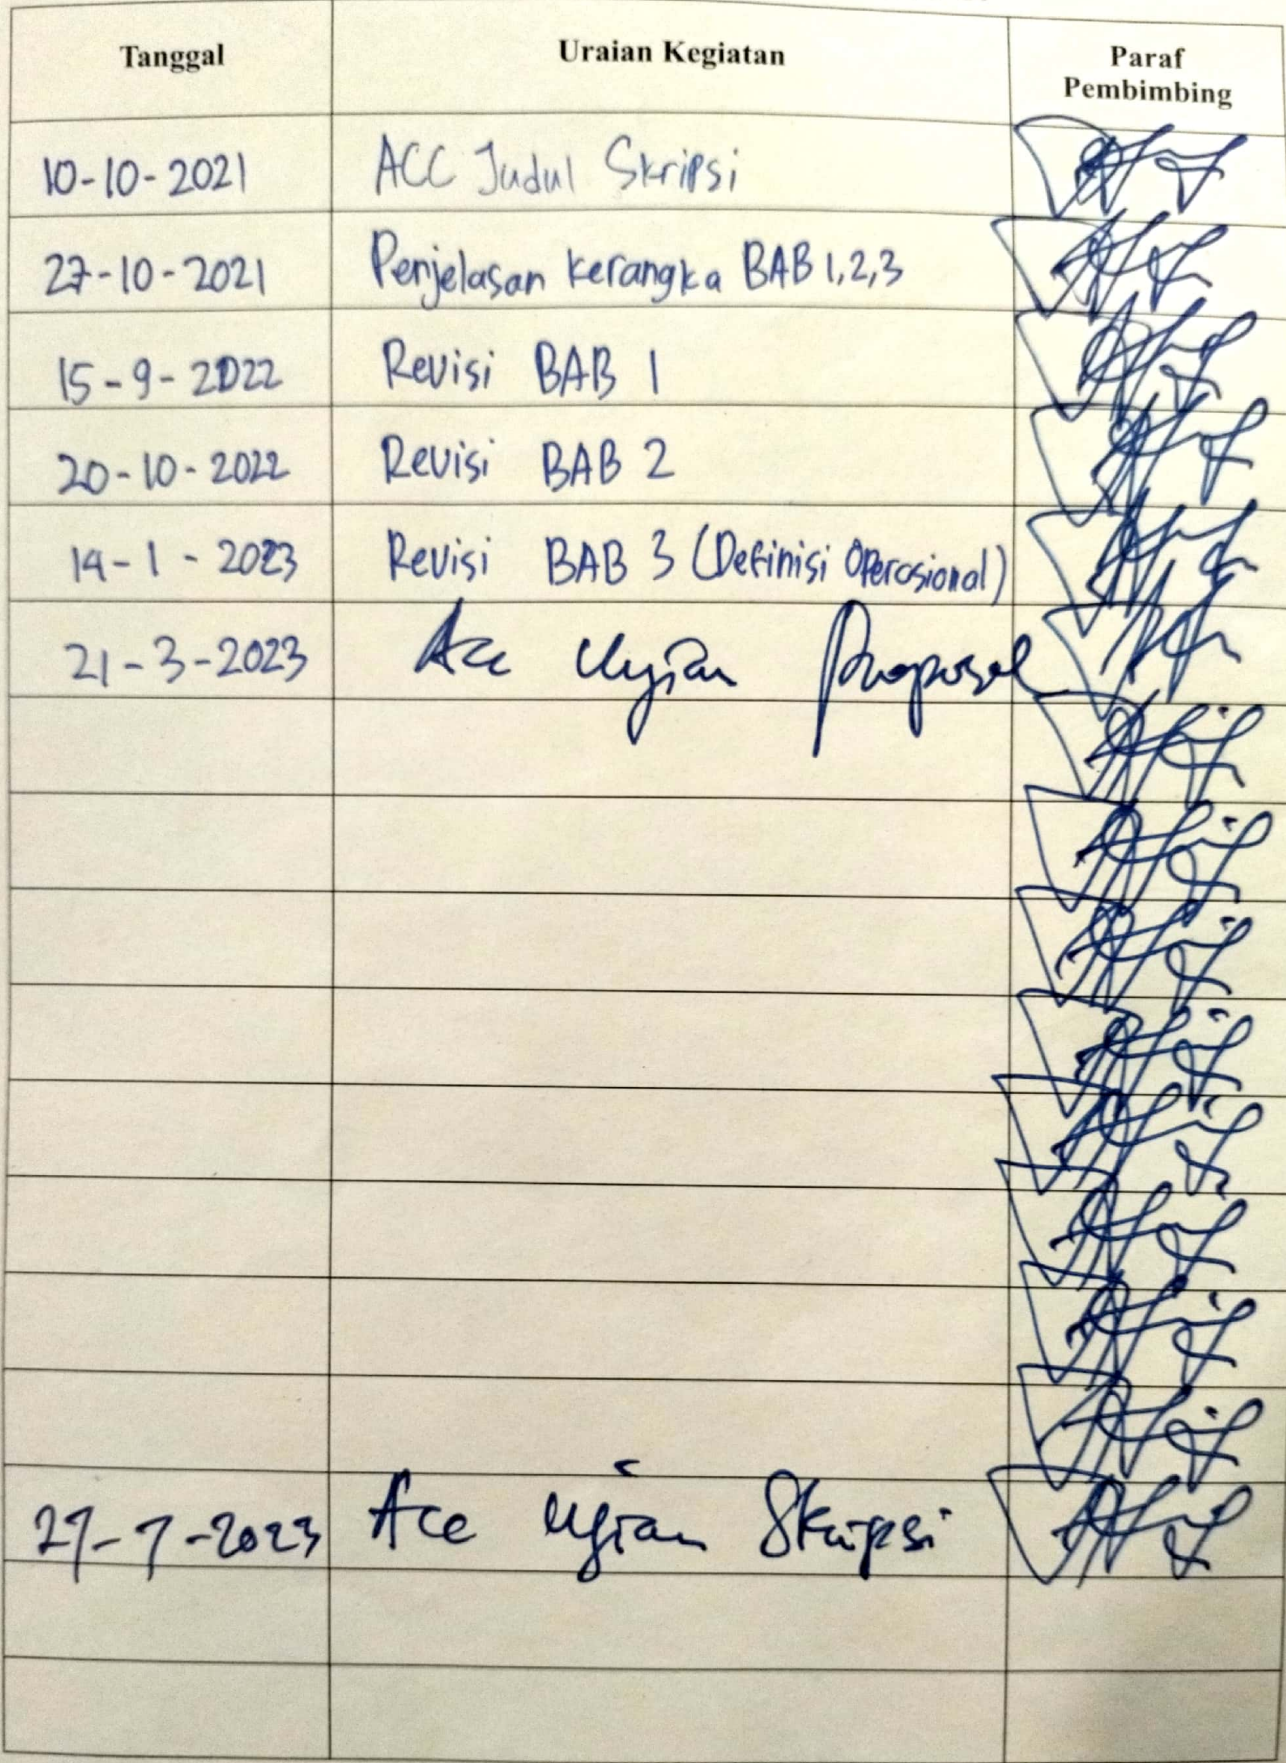 Tanggal Uraian Kegiatan Paraf
Pembimbing
10-10-2021 ACC Judul Skripsi
27-10-2021 Penjelasan kerangka BAB 1,2,3
15-9-2022 Revisi BAB 1
20-10-2022 Revisi BAB 2
14-1-2023 Revisi BAB 3 (Definisi Operasional)
21-3-2023 Acc Ujian Proposal
27-7-2023 Acc Ujian Skripsi